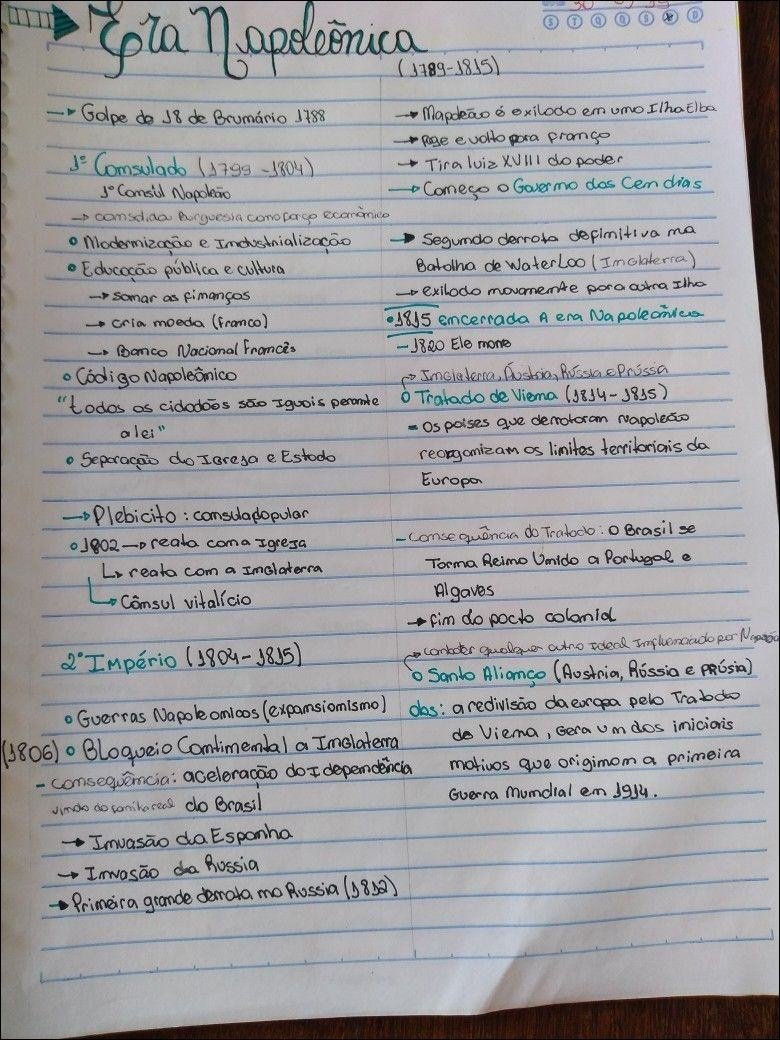 30
S T Q Q S S D
Era Napoleônica
(1789-1815)
→ Golpe de 18 de Brumário 1788
1º Consulado (1799-1804)
1º Consul Napoleão
→ consolida Burguesia como força econômica
• Modernização e Industrialização
• Educação pública e cultura
→ sanar as finanças
→ cria moeda (franco)
→ Banco Nacional Francês
• Código Napoleônico
"todos os cidadões são Iguais perante
a lei"
• Separação da Igreja e Estado
→ Plebicito: consulta popular
• 1802 → reata com a Igreja
↳ reata com a Inglaterra
↳ Cônsul vitalício
2º Império (1804-1815)
• Guerras Napoleonicas (expansionismo)
(1806) • Bloqueio Continental a Inglaterra
- consequência: aceleração da Idependência
vinda da familia real do Brasil
→ Invasão da Espanha
→ Invasão da Russia
→ Primeira grande derrota na Russia (1812)
→ Napoleão é exilado em uma Ilha Elba
→ foge e volta para frança
→ Tira luiz XVIII do poder
→ Começo o Governo dos Cem dias
→ Segundo derrota definitiva na
Batalha de Waterloo (Inglaterra)
→ exilado novamente para outra Ilha
• 1815 encerrada A era Napoleônica
- 1820 Ele morre
→ Inglaterra, Áustria, Rússia e Prússia
o Tratado de Viena (1814-1815)
- os países que derrotaram napoleão
reorganizam os limites territoriais da
Europa
- consequência do Tratado: o Brasil se
Torna Reino Unido a Portugal e
Algaves
→ fim do pacto colonial
→ conter qualquer outro Ideal Influenciado por Napoleão
o Santa Aliança (Austria, Rússia e PRÚSIA)
obs: a redivisão da europa pelo Tratado
de Viena, Gera um dos iniciais
motivos que originam a primeira
Guerra Mundial em 1914.